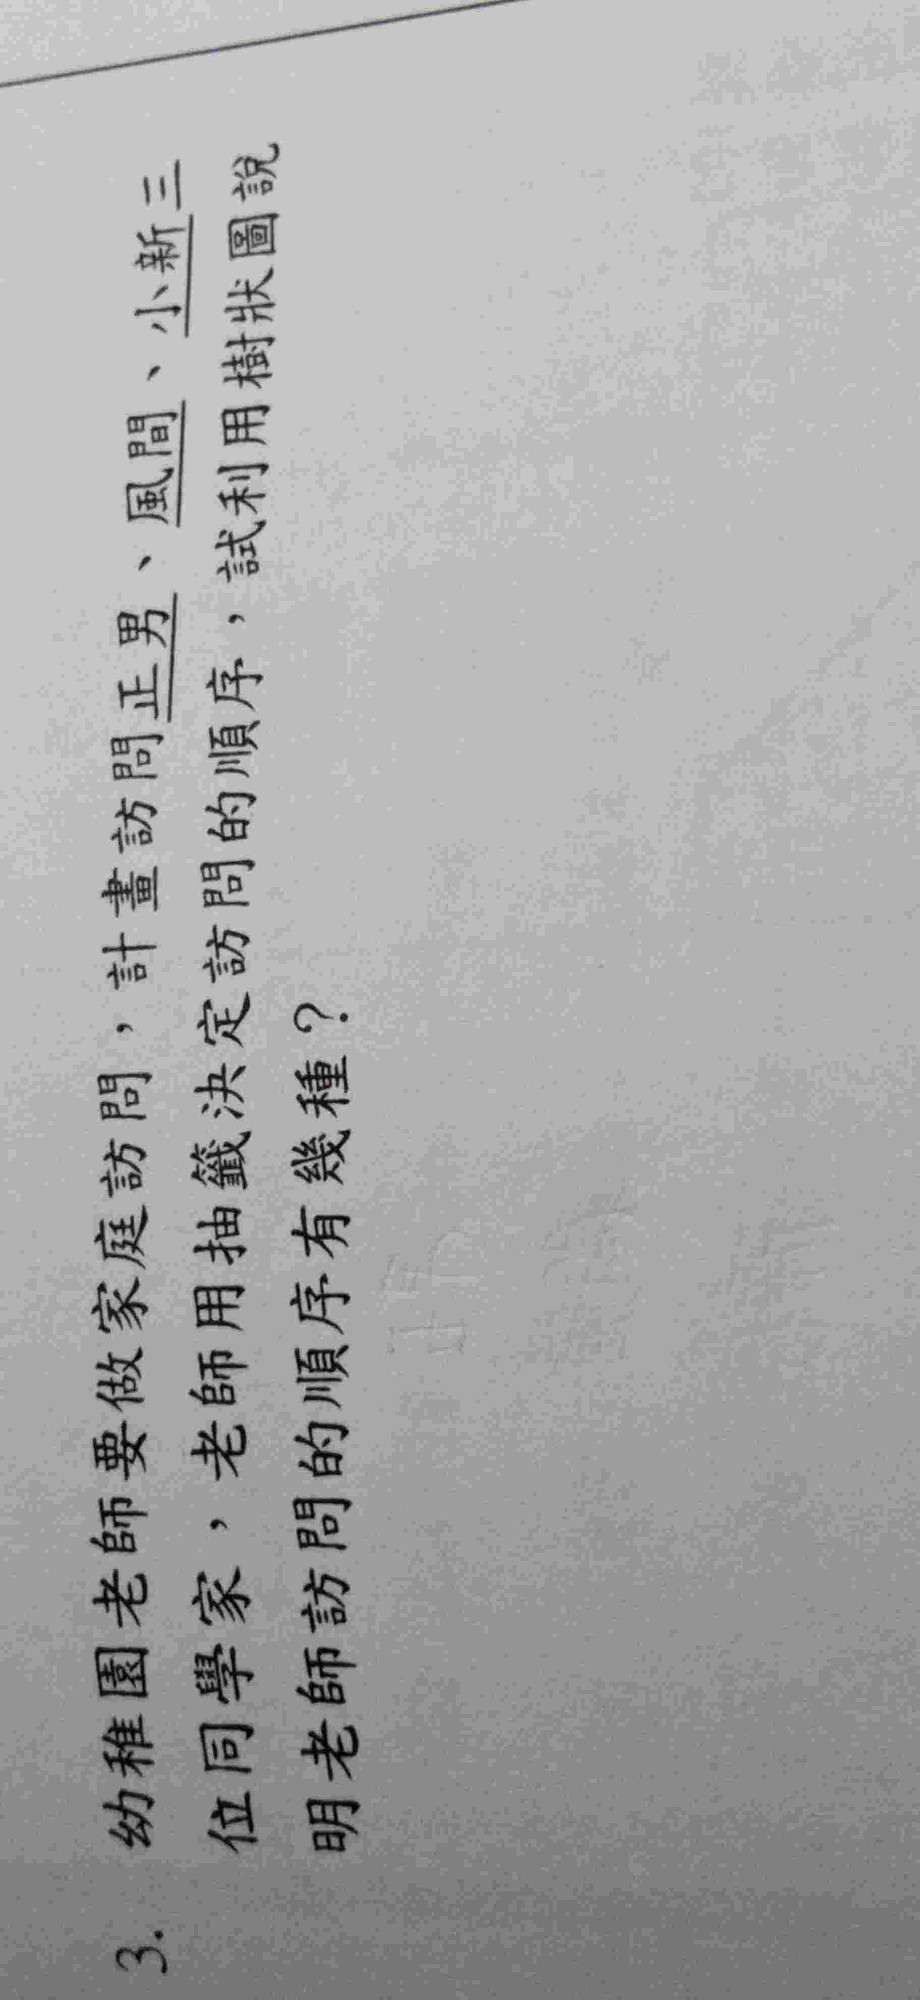 3. 幼稚園老師要做家庭訪問，計畫訪問正男、風間、小新三
位同學家，老師用抽籤決定訪問的順序，試利用樹狀圖說
明老師訪問的順序有幾種？